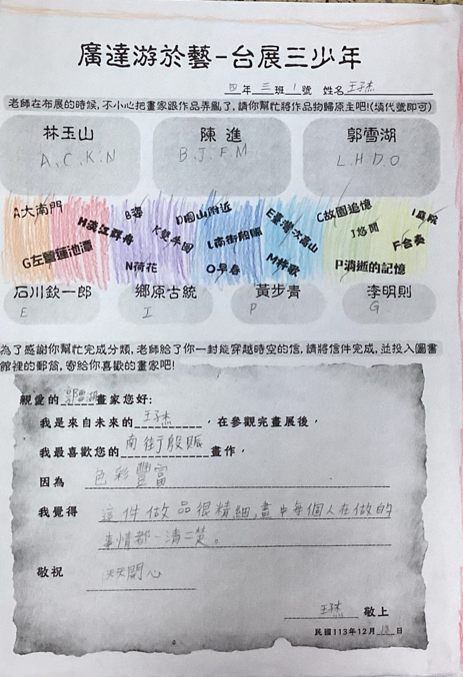 廣達游於藝-台展三少年
四年三班1號 姓名王子杰
老師在布展的時候,不小心把畫家跟作品弄亂了,請你幫忙將作品物歸原主吧!(填代號即可)
林玉山 陳進 郭雪湖
A、C、K、N B、J、F、M L、H、D、O
A大南門 B春 D圓山附近 E臺灣次高山 C故園追憶 I庭院
H淡江群舟 K雙牛圖 L南街殷賑 J悠閒 F合奏
G左營蓮池潭 N荷花 O早春 M杵歌 P消逝的記憶
石川欽一郎 鄉原古統 黃步青 李明則
E I P G
為了感謝你幫忙完成分類,老師給了你一封能穿越時空的信,請將信件完成,並投入圖書
館裡的郵筒,寄給你喜歡的畫家吧!
親愛的郭雪湖畫家您好:
我是來自未來的王子杰,在參觀完畫展後,
我最喜歡您的南街殷賑畫作,
因為 色彩豐富
我覺得 這件做品很精細,畫中每個人在做的
事情都一清二楚。
敬祝 天天開心
王子杰 敬上
民國113年12月 日